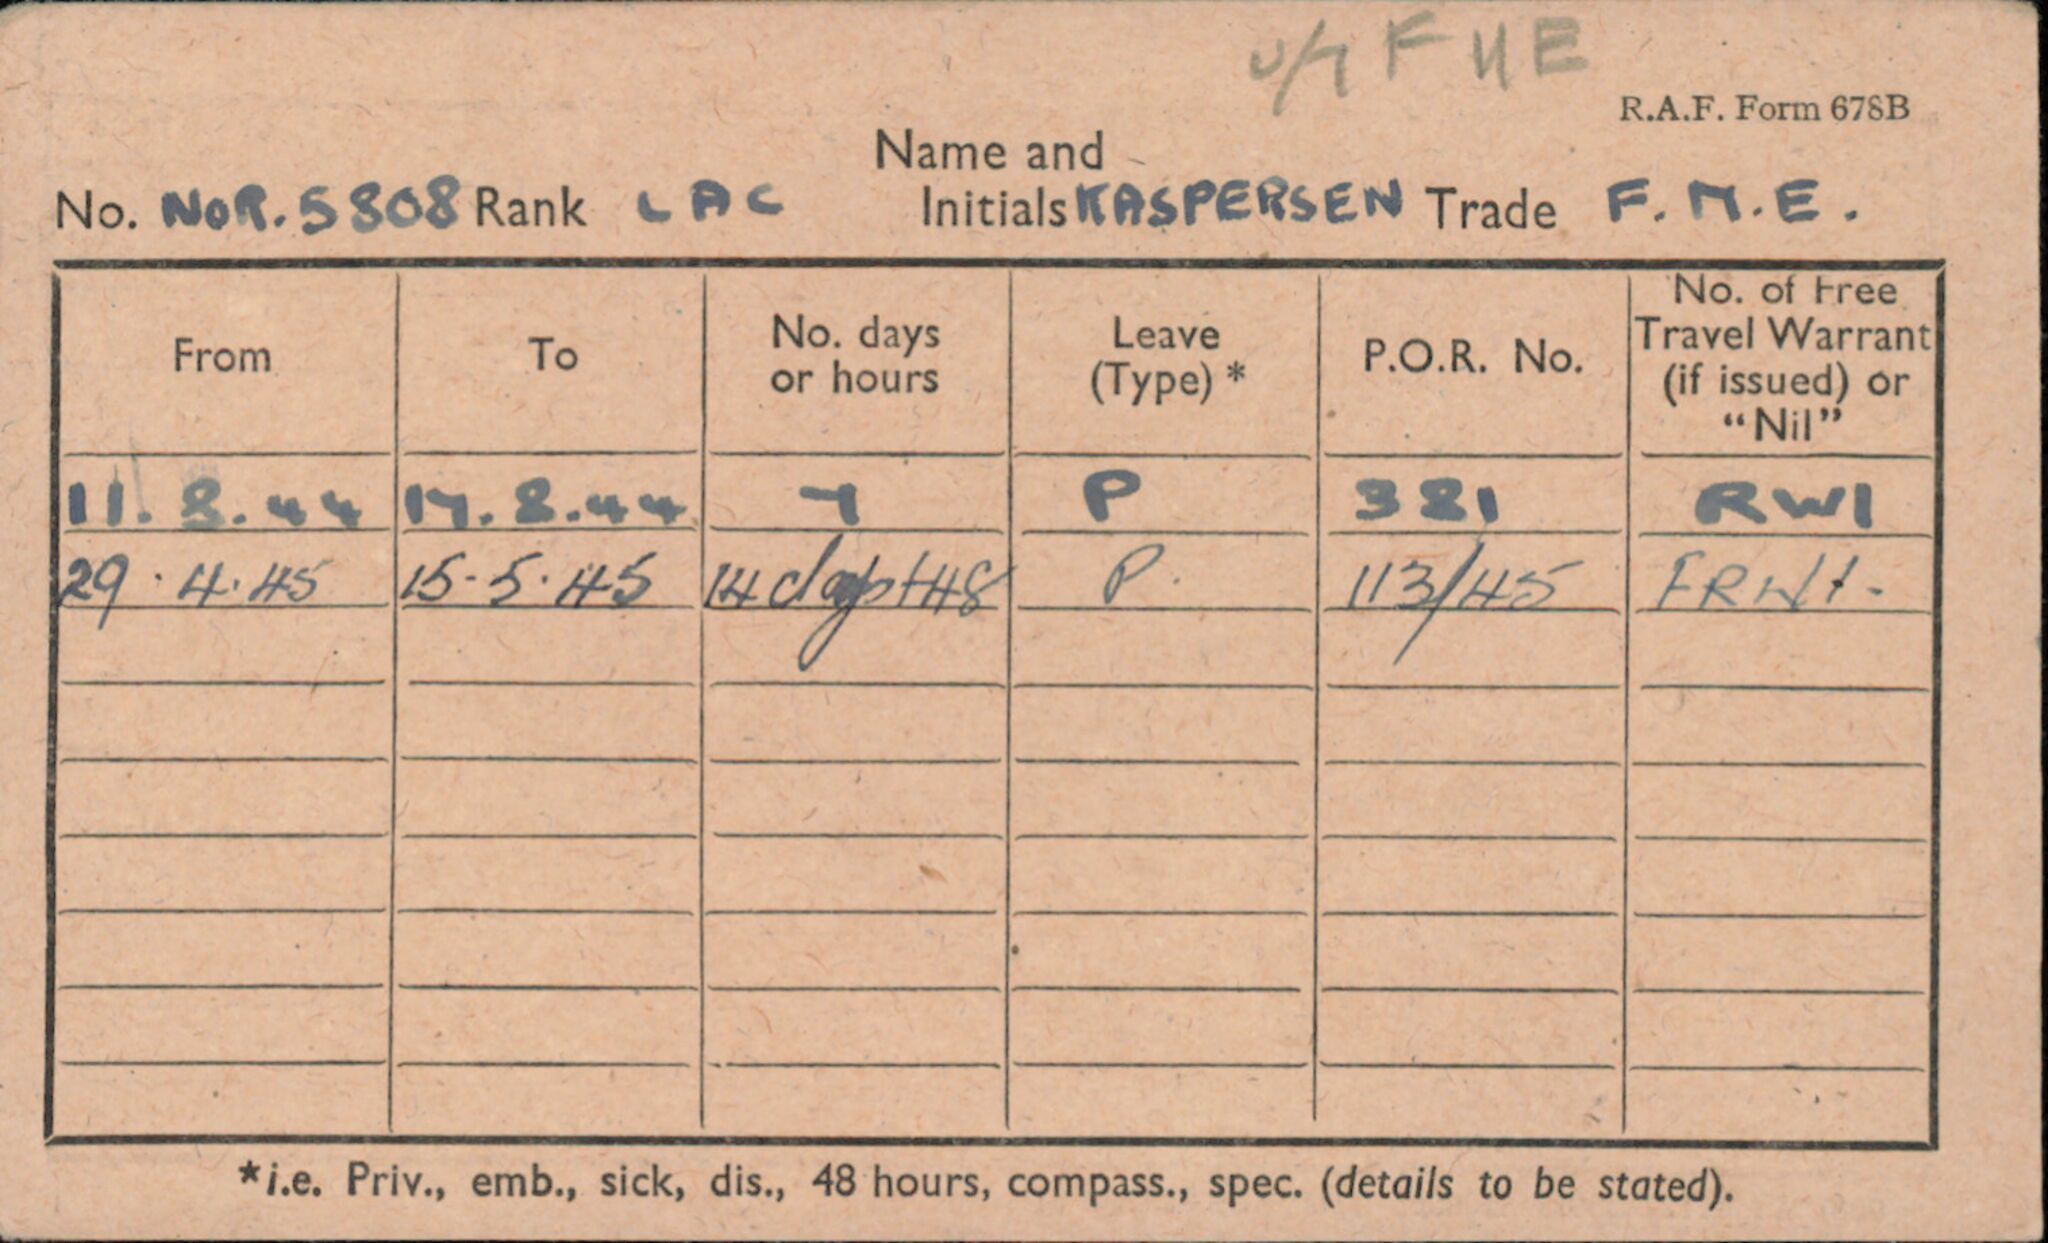 U/T F M E
R.A.F. Form 678B
Name and
No. NOR. 5808 Rank LAC Initials KASPERSEN Trade F. M. E.
From To No. days or hours Leave (Type) * P.O.R. No. No. of Free Travel Warrant (if issued) or "Nil"
11. 8. 44 17. 8. 44 7 P 381 RW1
29. 4. 45 15. 5. 45 14 days + 48 P. 113/45
*i.e. Priv., emb., sick, dis., 48 hours, compass., spec. (details to be stated).